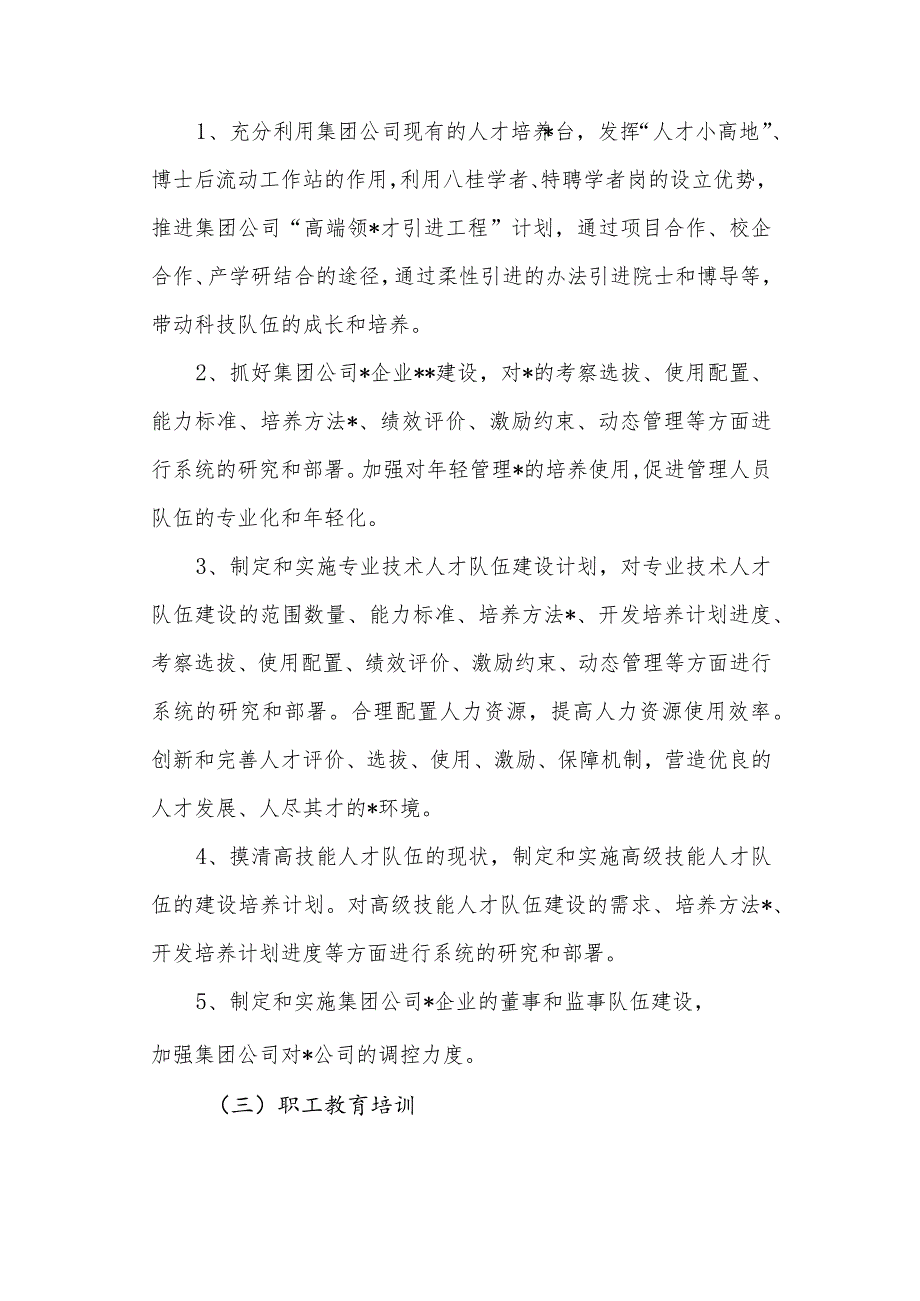 1、充分利用集团公司现有的人才培养*台，发挥“人才小高地”、
博士后流动工作站的作用，利用八桂学者、特聘学者岗的设立优势，
推进集团公司“高端领*才引进工程”计划，通过项目合作、校企
合作、产学研结合的途径，通过柔性引进的办法引进院士和博导等，
带动科技队伍的成长和培养。
2、抓好集团公司*企业**建设，对*的考察选拔、使用配置、
能力标准、培养方法*、绩效评价、激励约束、动态管理等方面进
行系统的研究和部署。加强对年轻管理*的培养使用，促进管理人员
队伍的专业化和年轻化。
3、制定和实施专业技术人才队伍建设计划，对专业技术人才
队伍建设的范围数量、能力标准、培养方法*、开发培养计划进度、
考察选拔、使用配置、绩效评价、激励约束、动态管理等方面进行
系统的研究和部署。合理配置人力资源，提高人力资源使用效率。
创新和完善人才评价、选拔、使用、激励、保障机制，营造优良的
人才发展、人尽其才的*环境。
4、摸清高技能人才队伍的现状，制定和实施高级技能人才队
伍的建设培养计划。对高级技能人才队伍建设的需求、培养方法*、
开发培养计划进度等方面进行系统的研究和部署。
5、制定和实施集团公司*企业的董事和监事队伍建设，
加强集团公司对*公司的调控力度。
（三）职工教育培训